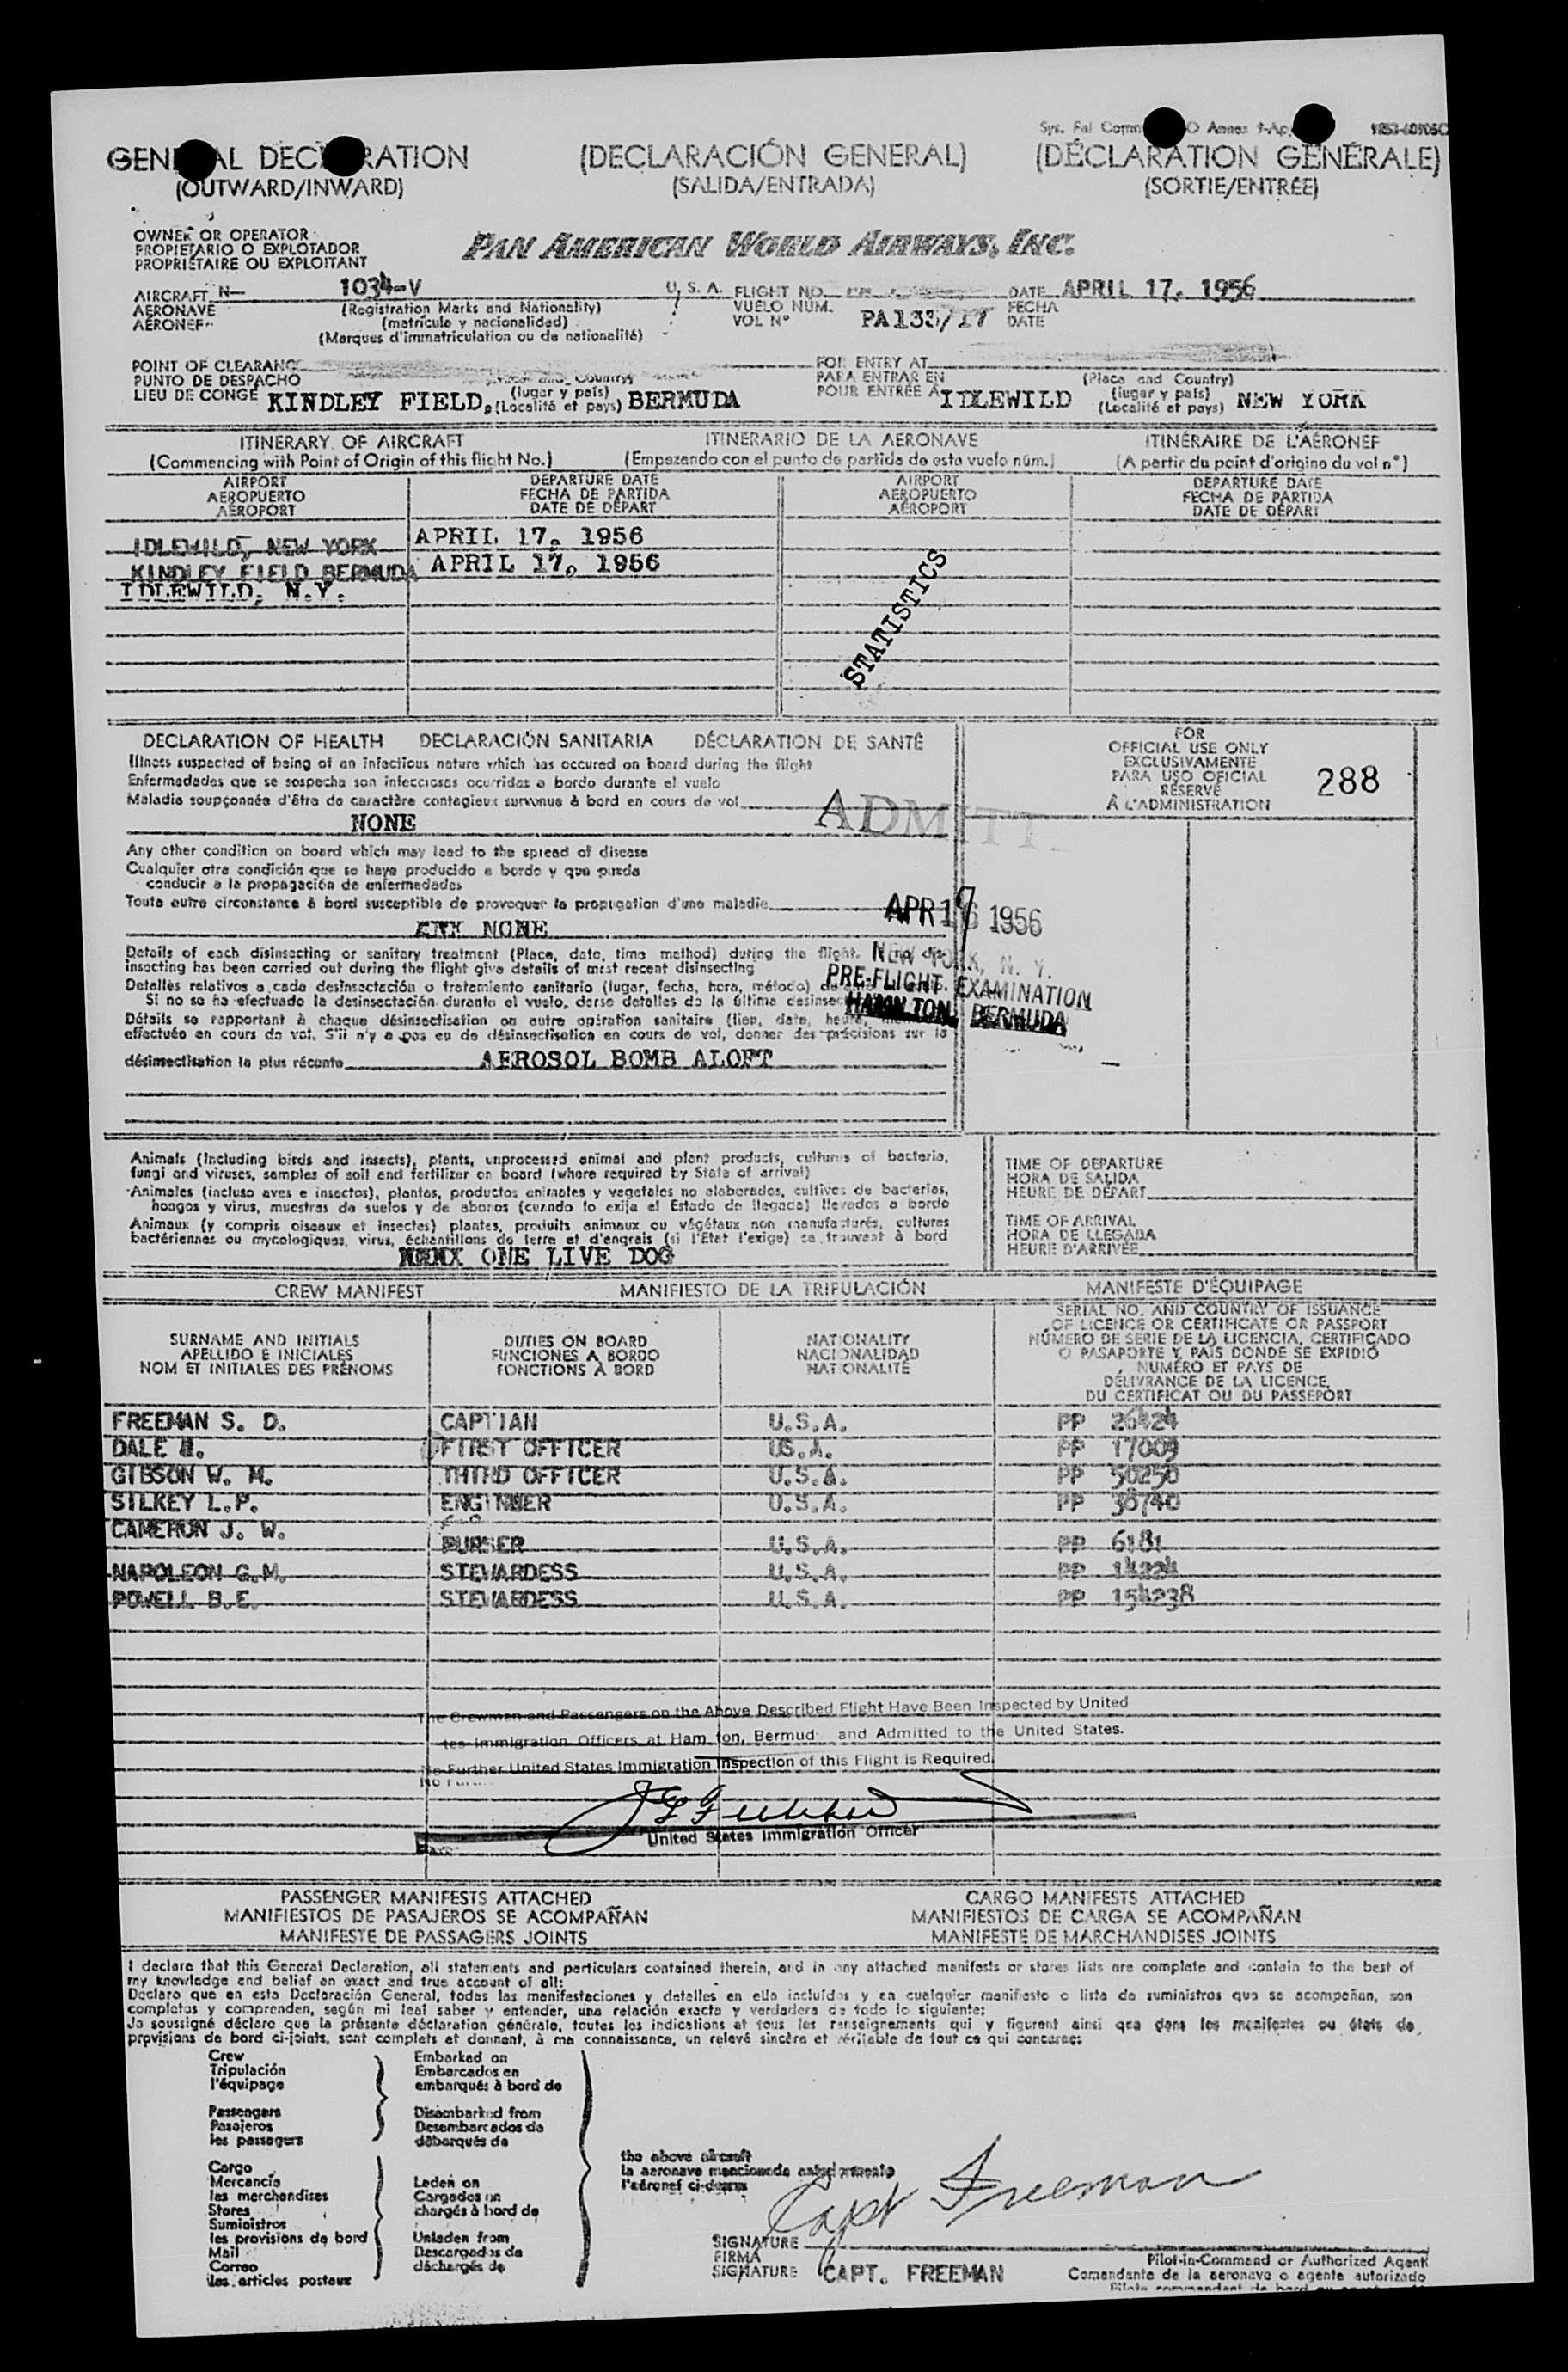 Sys. Fal Comm O Annex 9-Ap.
GEN AL DEC RATION (DECLARACIÓN GENERAL) (DÉCLARATION GÉNÉRALE)
(OUTWARD/INWARD) (SALIDA/ENTRADA) (SORTIE/ENTRÉE)
OWNER OR OPERATOR
PROPIETARIO O EXPLOTADOR
PROPRIÉTAIRE OU EXPLOITANT
PAN AMERICAN WORLD AIRWAYS, INC.
AIRCRAFT N— 1034-V U. S. A. FLIGHT NO. DATE APRIL 17, 1956
AERONAVE (Registration Marks and Nationality) VUELO NÚM. FECHA
AÉRONEF (matrícula y nacionalidad) VOL Nº PA133/17 DATE
(Marques d'immatriculation ou de nationalité)
POINT OF CLEARANC FOR ENTRY AT
PUNTO DE DESPACHO and Country) PARA ENTRAR EN (Place and Country)
LIEU DE CONGÉ KINDLEY FIELD, (lugar y país) (Localité et pays) BERMUDA POUR ENTRÉE À IDLEWILD (lugar y país) (Localité et pays) NEW YORK
ITINERARY OF AIRCRAFT ITINERARIO DE LA AERONAVE ITINÉRAIRE DE L'AÉRONEF
(Commencing with Point of Origin of this flight No.) (Empezando con el punto de partida de este vuelo núm.) (A partir du point d'origine du vol n°)
AIRPORT DEPARTURE DATE AIRPORT DEPARTURE DATE
AEROPUERTO FECHA DE PARTIDA AEROPUERTO FECHA DE PARTIDA
AÉROPORT DATE DE DÉPART AÉROPORT DATE DE DÉPART
IDLEWILD, NEW YORK APRIL 17. 1956
KINDLEY FIELD BERMUDA APRIL 17. 1956
IDLEWILD, N.Y.
STATISTICS
DECLARATION OF HEALTH DECLARACIÓN SANITARIA DÉCLARATION DE SANTÉ
Illness suspected of being of an infectious nature which has occured on board during the flight
Enfermedades que se sospecha son infecciosas ocurridas a bordo durante el vuelo
Maladie soupçonnée d'être de caractère contagieux survenue à bord en cours de vol
NONE
FOR
OFFICIAL USE ONLY
EXCLUSIVAMENTE
PARA USO OFICIAL
RÉSERVÉ
À L'ADMINISTRATION
288
ADMITT
Any other condition on board which may lead to the spread of disease
Cualquier otra condición que se haya producido a bordo y que pueda
conducir a la propagación de enfermedades
Toute autre circonstance à bord susceptible de provoquer la propagation d'une maladie
NONE
APR 17 1956
NEW YORK, N. Y.
PRE-FLIGHT EXAMINATION
HAMILTON, BERMUDA
Details of each disinsecting or sanitary treatment (Place, date, time method) during the flight.
insecting has been carried out during the flight give details of most recent disinsecting
Detalles relativos a cada desinsectación o tratamiento sanitario (lugar, fecha, hora, método)
Si no se ha efectuado la desinsectación durante el vuelo, darse detalles de la última desinsec
Détails se rapportant à chaque désinsectisation ou autre opération sanitaire (lieu, date, heure,
effectuée en cours de vol. S'il n'y a pas eu de désinsectisation en cours de vol, donner des précisions sur la
désinsectisation la plus récente AEROSOL BOMB ALOFT
Animals (Including birds and insects), plants, unprocessed animal and plant products, cultures of bacteria,
fungi and viruses, samples of soil and fertilizer on board (where required by State of arrival)
Animales (incluso aves e insectos), plantas, productos animales y vegetales no elaborados, cultivos de bacterias,
hongos y virus, muestras de suelos y de abonos (cuando lo exija el Estado de llegada) llevados a bordo
Animaux (y compris oiseaux et insectes) plantes, produits animaux ou végétaux non manufacturés, cultures
bactériennes ou mycologiques, virus, échantillons de terre et d'engrais (si l'Etat l'exige) se trouvant à bord
ONE LIVE DOG
TIME OF DEPARTURE
HORA DE SALIDA
HEURE DE DÉPART
TIME OF ARRIVAL
HORA DE LLEGADA
HEURE D'ARRIVÉE
CREW MANIFEST MANIFIESTO DE LA TRIPULACIÓN MANIFESTE D'ÉQUIPAGE
SURNAME AND INITIALS
APELLIDO E INICIALES
NOM ET INITIALES DES PRÉNOMS
DUTIES ON BOARD
FUNCIONES A BORDO
FONCTIONS À BORD
NATIONALITY
NACIONALIDAD
NATIONALITÉ
SERIAL NO. AND COUNTRY OF ISSUANCE
OF LICENCE OR CERTIFICATE OR PASSPORT
NÚMERO DE SERIE DE LA LICENCIA, CERTIFICADO
O PASAPORTE Y PAÍS DONDE SE EXPIDIÓ
NUMÉRO ET PAYS DE
DÉLIVRANCE DE LA LICENCE,
DU CERTIFICAT OU DU PASSEPORT
FREEMAN S. D. CAPTIAN U.S.A. PP 26424
DALE FIRST OFFICER US.A. PP 17009
GIBSON W. M. THIRD OFFICER U.S.A. PP 50250
SILKEY L.P. ENGINEER U.S.A. PP 38740
CAMERON J. W. PURSER U.S.A. PP 6181
NAPOLEON G.M. STEWARDESS U.S.A. PP 14224
POWELL B.E. STEWARDESS U.S.A. PP 154238
The Crewmen and Passengers on the Above Described Flight Have Been Inspected by United
tes Immigration Officers at Ham ton, Bermud and Admitted to the United States.
No Further United States Immigration Inspection of this Flight is Required.
United States Immigration Officer
PASSENGER MANIFESTS ATTACHED CARGO MANIFESTS ATTACHED
MANIFIESTOS DE PASAJEROS SE ACOMPAÑAN MANIFIESTOS DE CARGA SE ACOMPAÑAN
MANIFESTE DE PASSAGERS JOINTS MANIFESTE DE MARCHANDISES JOINTS
I declare that this General Declaration, all statements and particulars contained therein, and in any attached manifests or stores lists are complete and contain to the best of
my knowledge and belief an exact and true account of all:
Declaro que en esta Declaración General, todas las manifestaciones y detalles en ella incluídos y en cualquier manifiesto o lista de suministros que se acompañan, son
completos y comprenden, según mi leal saber y entender, una relación exacta y verdadera de todo lo siguiente:
Je soussigné déclare que la présente déclaration générale, toutes les indications et tous les renseignements qui y figurent ainsi que dans les manifestes ou états de
provisions de bord ci-joints, sont complets et donnent, à ma connaissance, un relevé sincère et véritable de tout ce qui concerne:
Crew Embarked on
Tripulación Embarcados en
l'équipage embarqués à bord de
Passengers Disembarked from
Pasajeros Desembarcados de
les passagers débarqués de
Cargo
Mercancía
les merchandises
Stores
Suministros
les provisions de bord
Mail
Correo
les articles postaux
Laden on
Cargados en
chargés à bord de
Unladen from
Descargados de
déchargés de
the above aircraft
la aeronave mencionada anteriormente
l'aéronef ci-dessus
Capt Freeman
SIGNATURE
FIRMA
SIGNATURE CAPT. FREEMAN
Pilot-in-Command or Authorized Agent
Comandante de la aeronave o agente autorizado